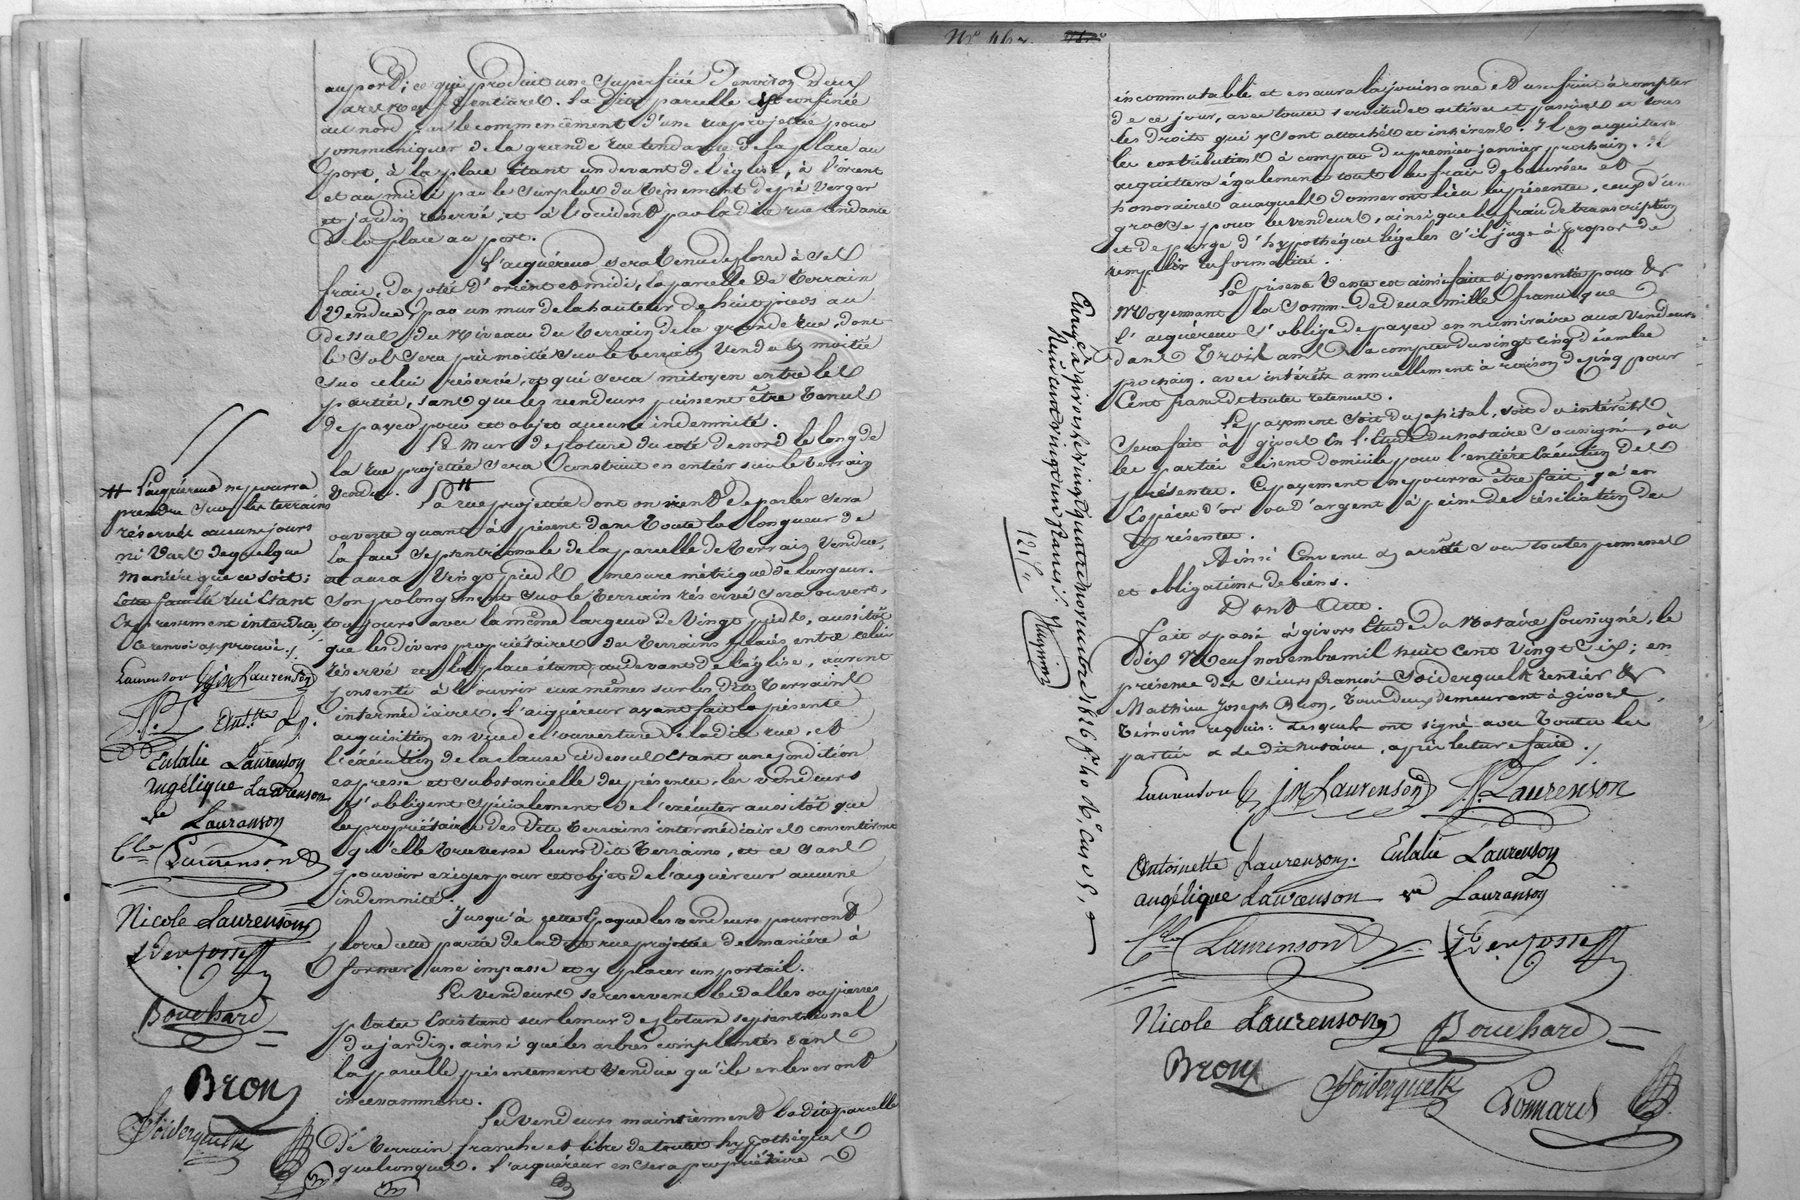 au port; ce qui produit une superficie d'environ deux
ares neuf centiares. La dite parcelle est confinée
au nord par le commencement d'une rue projettée pour
communiquer de la grande rue tendante de la place au
port, à la place étant au devant de l'église, à l'orient
et au midi par le surplus du tènement de pré verger
et jardin réservé, et à l'occident par la dite rue tendante
de la place au port.
L'acquéreur sera tenu de clorre à ses
frais, du coté d'orient et midi, la parcelle de terrain
vendue, par un mur de la hauteur de huit pieds au
dessus du niveau du terrain de la grande rue, dont
le sol sera pris moitié sur le terrain vendu et moitié
sur celui réservé, et qui sera mitoyen entre les
parties, sans que les vendeurs puissent être tenus
de payer pour cet objet aucune indemnité.
Le mur de cloture du coté de nord le long de
la rue projettée sera construit en entier sur le terrain
vendu.
La rue projettée dont on vient de parler sera
ouverte quant à présent dans toute la longueur de
la face septentrionale de la parcelle de terrain vendue,
et aura vingt pieds mesure métrique de largeur.
Son prolongement sur le terrain réservé sera ouvert,
toujours avec la même largeur de vingt pieds, aussitôt
que les divers propriétaires des terrains placés entre celui
réservé et la place étant au devant de l'église, auront
consenti à l'ouvrir eux mêmes sur les dits terrains
intermédiaires. L'acquéreur ayant fait la présente
acquisition en vue de l'ouverture de la dite rue, et
l'exécution de la clause ci dessus étant une condition
expresse et substancielle des présentes, les vendeurs
s'obligent spécialement de l'exécuter aussitôt que
les propriétaires des dits terrains intermédiaires consentiront
qu'elle traverse leurs dits terrains, et ce sans
pouvoir exiger pour cet objet de l'acquéreur aucune
indemnité.
Jusqu'à cette époque les vendeurs pourront
clorre cette partie de la dite rue projettée de manière à
former une impasse et y placer un portail.
Les vendeurs se reservent les dalles ou pierres
plates existant sur le mur de cloture septentrional
du jardin, ainsi que les arbres complantés dans
la parcelle présentement vendue qu'ils enleveront
incessamment.
Les vendeurs maintiennent la dite parcelle
de terrain franche et libre de toutes hypothèques
quelconques. L'acquéreur en sera propriétaire
# L'acquéreur ne pourra
prendre sur les terrains
réservés aucuns jours
ni vues de quelque
manière que ce soit;
cette faculté lui étant
expressement interdite;
Ce renvoi approuvé.
Laurenson jn Laurenson
Antte L.
Eulalie Laurenson
angélique Laurenson
Lauranson
Laurenson
Nicole Laurenson
Bouchard
Bron
Soiderquelk
No 467
incommutable et en aura la jouissance et usufruit à compter
de ce jour, avec toutes servitudes actives et passives et tous
les droits qui y sont attachés et inhérens. Il en acquittera
les contributions à compter du premier janvier prochain. Il
acquittera également tous les frais déboursés et
honoraires auxquels donneront lieu les présentes, ceux d'une
grosse pour les vendeurs, ainsi que les frais de transcription
et de purge d'hypothèques légales s'il juge à propos de
remplir ces formalités.
La présente vente est ainsi faite et consentie pour et
moyennant la somme de deux mille francs que
l'acquéreur s'oblige de payer en numéraire aux vendeurs
dans trois ans à compter du vingt cinq décembre
prochain, avec intérêts annuellement à raison de cinq pour
cent francs de toutes retenues.
Le payement soit du capital, soit des intérêts
sera fait à givors en l'étude du notaire soussigné, où
les parties élisent domicile pour l'entière exécution des
présentes. Ce payement ne pourra être fait qu'en
espèces d'or ou d'argent à peine de résiliation des
présentes.
Ainsi convenu et arrêté sous toutes promesses
et obligations de biens.
Dont Acte.
Fait et passé à givors étude du Notaire soussigné, le
dix neuf novembre mil huit cent vingt six; en
présence des sieurs françois Soiderquelk rentier et
Mathieu Joseph Bron, tous deux demeurant à givors,
témoins requis: lesquels ont signé avec toutes les
parties et le dit notaire, après lecture faite.
Laurenson jn Laurenson Laurenson
Antoinette Laurenson. Eulalie Laurenson
angélique Laurenson Lauranson
Laurenson
Nicole Laurenson Bouchard
Bron Soiderquelk Ponnard
Enreg. à givors le vingt quatre novembre 1826 fo 40
Reçu cent vingt un francs
121 f